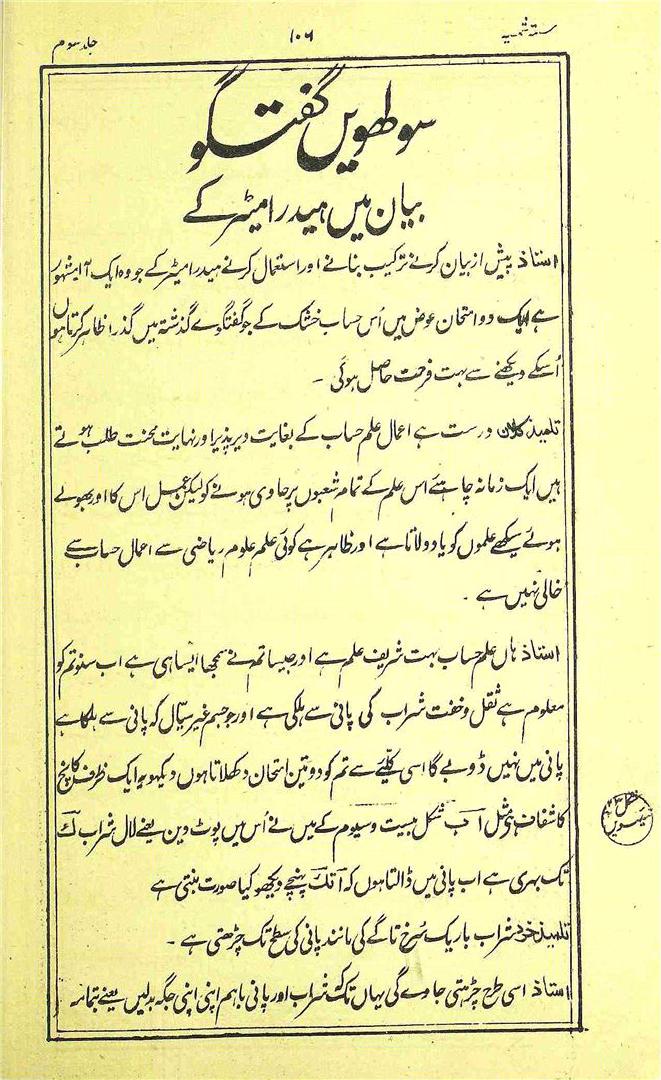 ستہ شمسیہ ۱۰۶ جلد سوم
سولھویں گفتگو
بیان میں ہیدرامیٹر کے
استاذ پیش از بیان کرنے ترکیب بنانے اور استعمال کرنے ہیدرامیٹر کے جو وہ ایک آلہ مشہور
ہے ایک دو امتحان عوض میں اُس حساب خشک کے جو گفتگوے گذشتہ میں گذرا ظاہر کرتا ہوں
اُسکے دیکھنے سے بہت فرحت حاصل ہوئی ۔
تلمیذ کلان درست ہے اعمال علم حساب کے بغایت دیرپذیر اور نہایت محنت طلب ہوتے
ہیں ایک زمانہ چاہئے اس علم کے تمام شعبوں پر حاوی ہونے کو لیکن عمل اس کا اور بھولے
ہوئے سیکھے علموں کو یاد دلاتا ہے اور ظاہر ہے کوئی علم علوم ریاضی سے اعمال حساب سے
خالی نہیں ہے ۔
استاذ ہاں علم حساب بہت شریف علم ہے اور جیسا تم نے سمجھا ایسا ہی ہے اب سنو تم کو
معلوم ہے ثقل و خفت شراب کی پانی سے ہلکی ہے اور جو جسم غیر سیّال کہ پانی سے ہلکا ہے
پانی میں نہیں ڈوبے گا اسی کلّیئے سے تم کو دو تین امتحان دکھلاتا ہوں دیکھو یہ ایک ظرف کانچ
کا شفاف ہی مثل آ ب شکل بیست و سیوم کے میں نے اُس میں پوٹ وین یعنے لال شراب
تک بھری ہے اب پانی میں ڈالتا ہوں کہ آ تک پہنچے دیکھو کیا صورت بنتی ہے
شکل ۲۳ تصویر
تلمیذ خرد شراب باریک سُرخ تاگے کی مانند پانی کی سطح تک چڑھتی ہے ۔
استاذ اسی طرح چڑھتی جاوے گی یہاں تک کہ شراب اور پانی باہم اپنی اپنی جگہ بدلیں یعنے بتمامہ